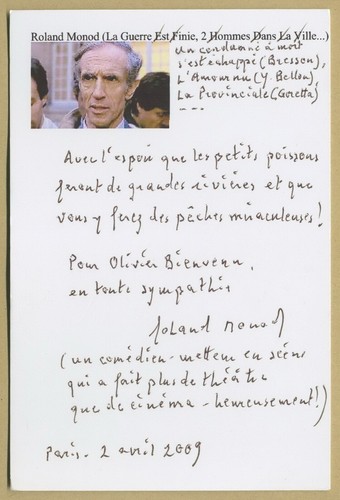 Roland Monod (La Guerre Est Finie, 2 Hommes Dans La Ville...)
un condamné à mort
s'est échappé (Bresson),
L'Amour nu (Y. Bellon),
La Provinciale (Goretta)
---
Avec l'espoir que les petits poissons
feront de grandes rivières et que
vous y ferez des pêches miraculeuses!
Pour Olivier Bienvenu,
en toute sympathie
Roland Monod
(un comédien-metteur en scène
qui a fait plus de théâtre
que de cinéma - heureusement!)
Paris. 2 avril 2009